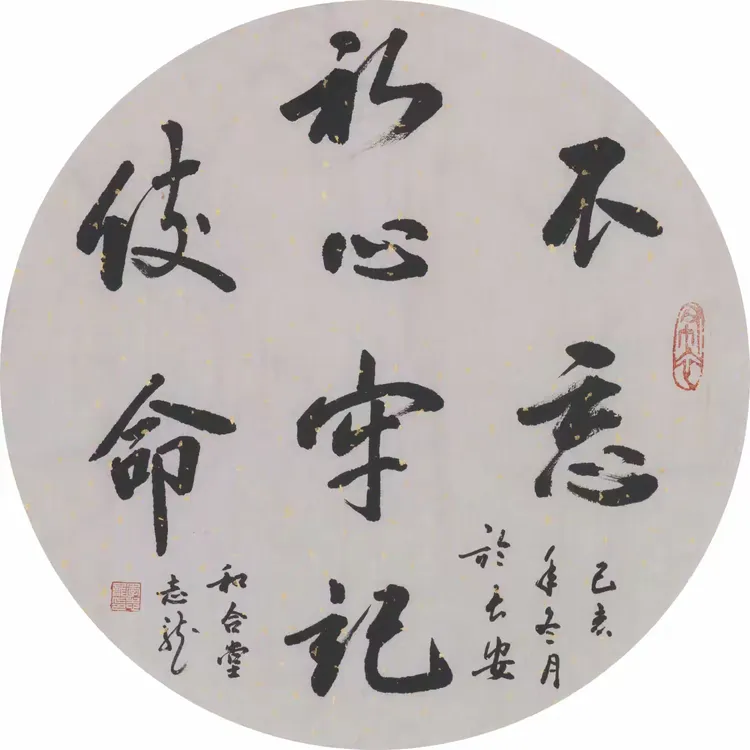 不忘
初心牢记
使命
己亥
年冬月
於长安
和合堂
志龍